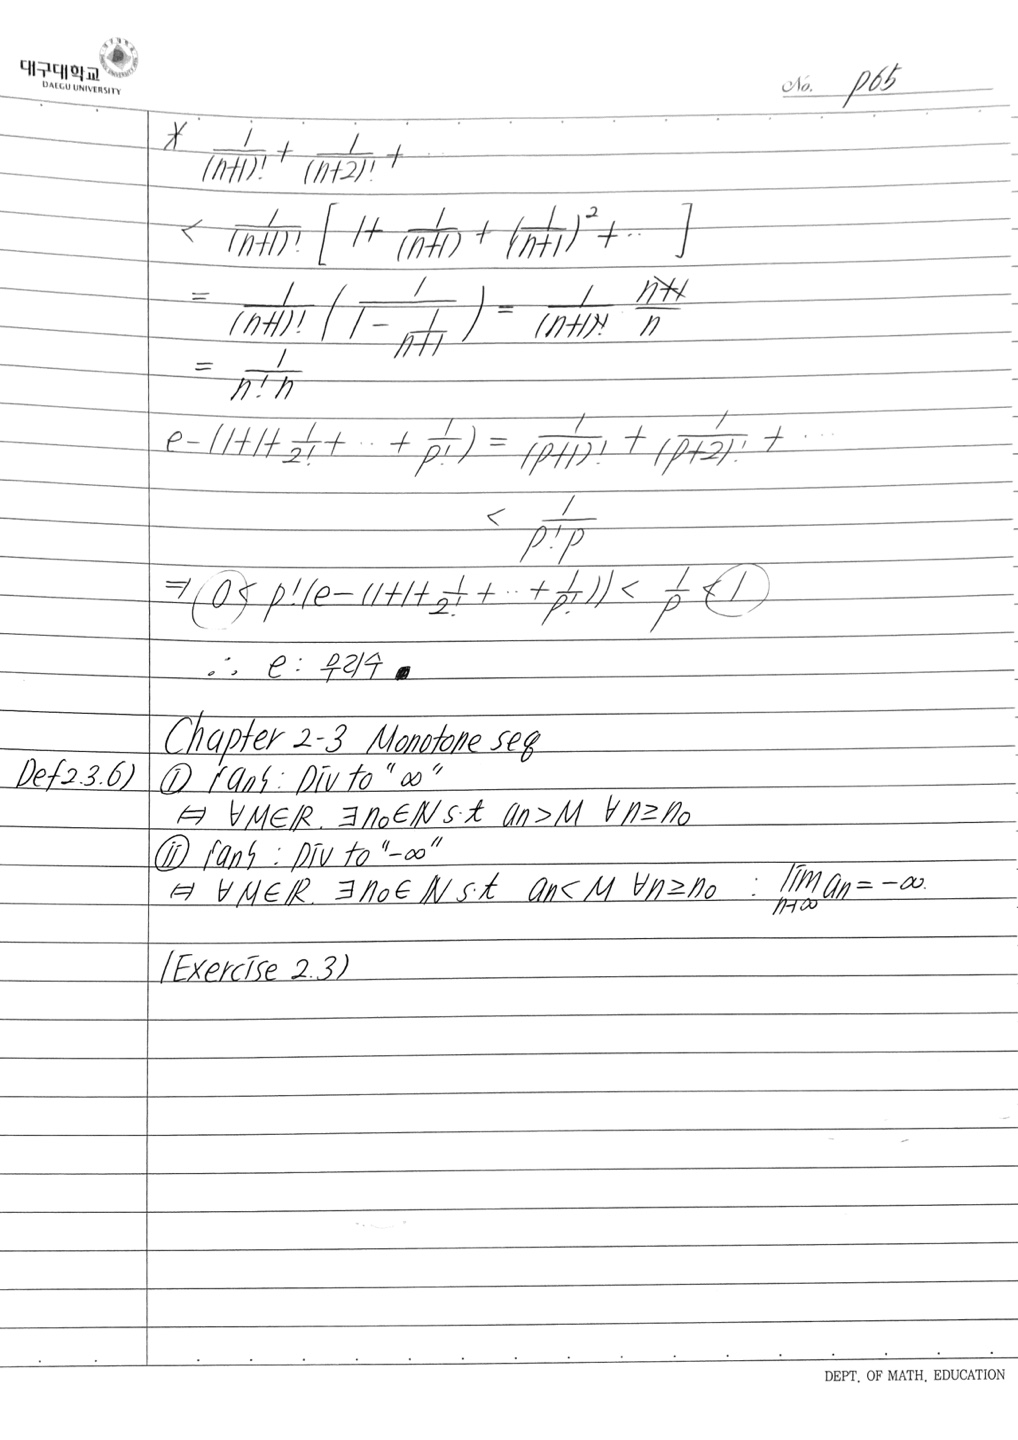 대구대학교
DAEGU UNIVERSITY
No. p65
* 1/(n+1)! + 1/(n+2)! + ···
< 1/(n+1)! [ 1 + 1/(n+1) + (1/(n+1))² + ·· ]
= 1/(n+1)! ( 1/(1 - 1/(n+1)) ) = 1/(n+1)! (n+1)/n
= 1/(n! n)
e - (1+1+ 1/2! + ·· + 1/p!) = 1/(p+1)! + 1/(p+2)! + ···
< 1/(p! p)
⇒ 0 < p!(e - (1+1+ 1/2! + ·· + 1/p!)) < 1/p < 1
∴ e : 우리수 ■
Chapter 2-3 Monotone seq
Def 2.3.6) ⓘ {an} : Div to "∞"
⇔ ∀M∈ℝ. ∃n₀∈ℕ s.t an>M ∀n≥n₀
ⓘⓘ {an} : Div to "-∞"
⇔ ∀M∈ℝ. ∃n₀∈ℕ s.t an<M ∀n≥n₀ : lim n→∞ an = -∞.
(Exercise 2.3)
DEPT. OF MATH. EDUCATION